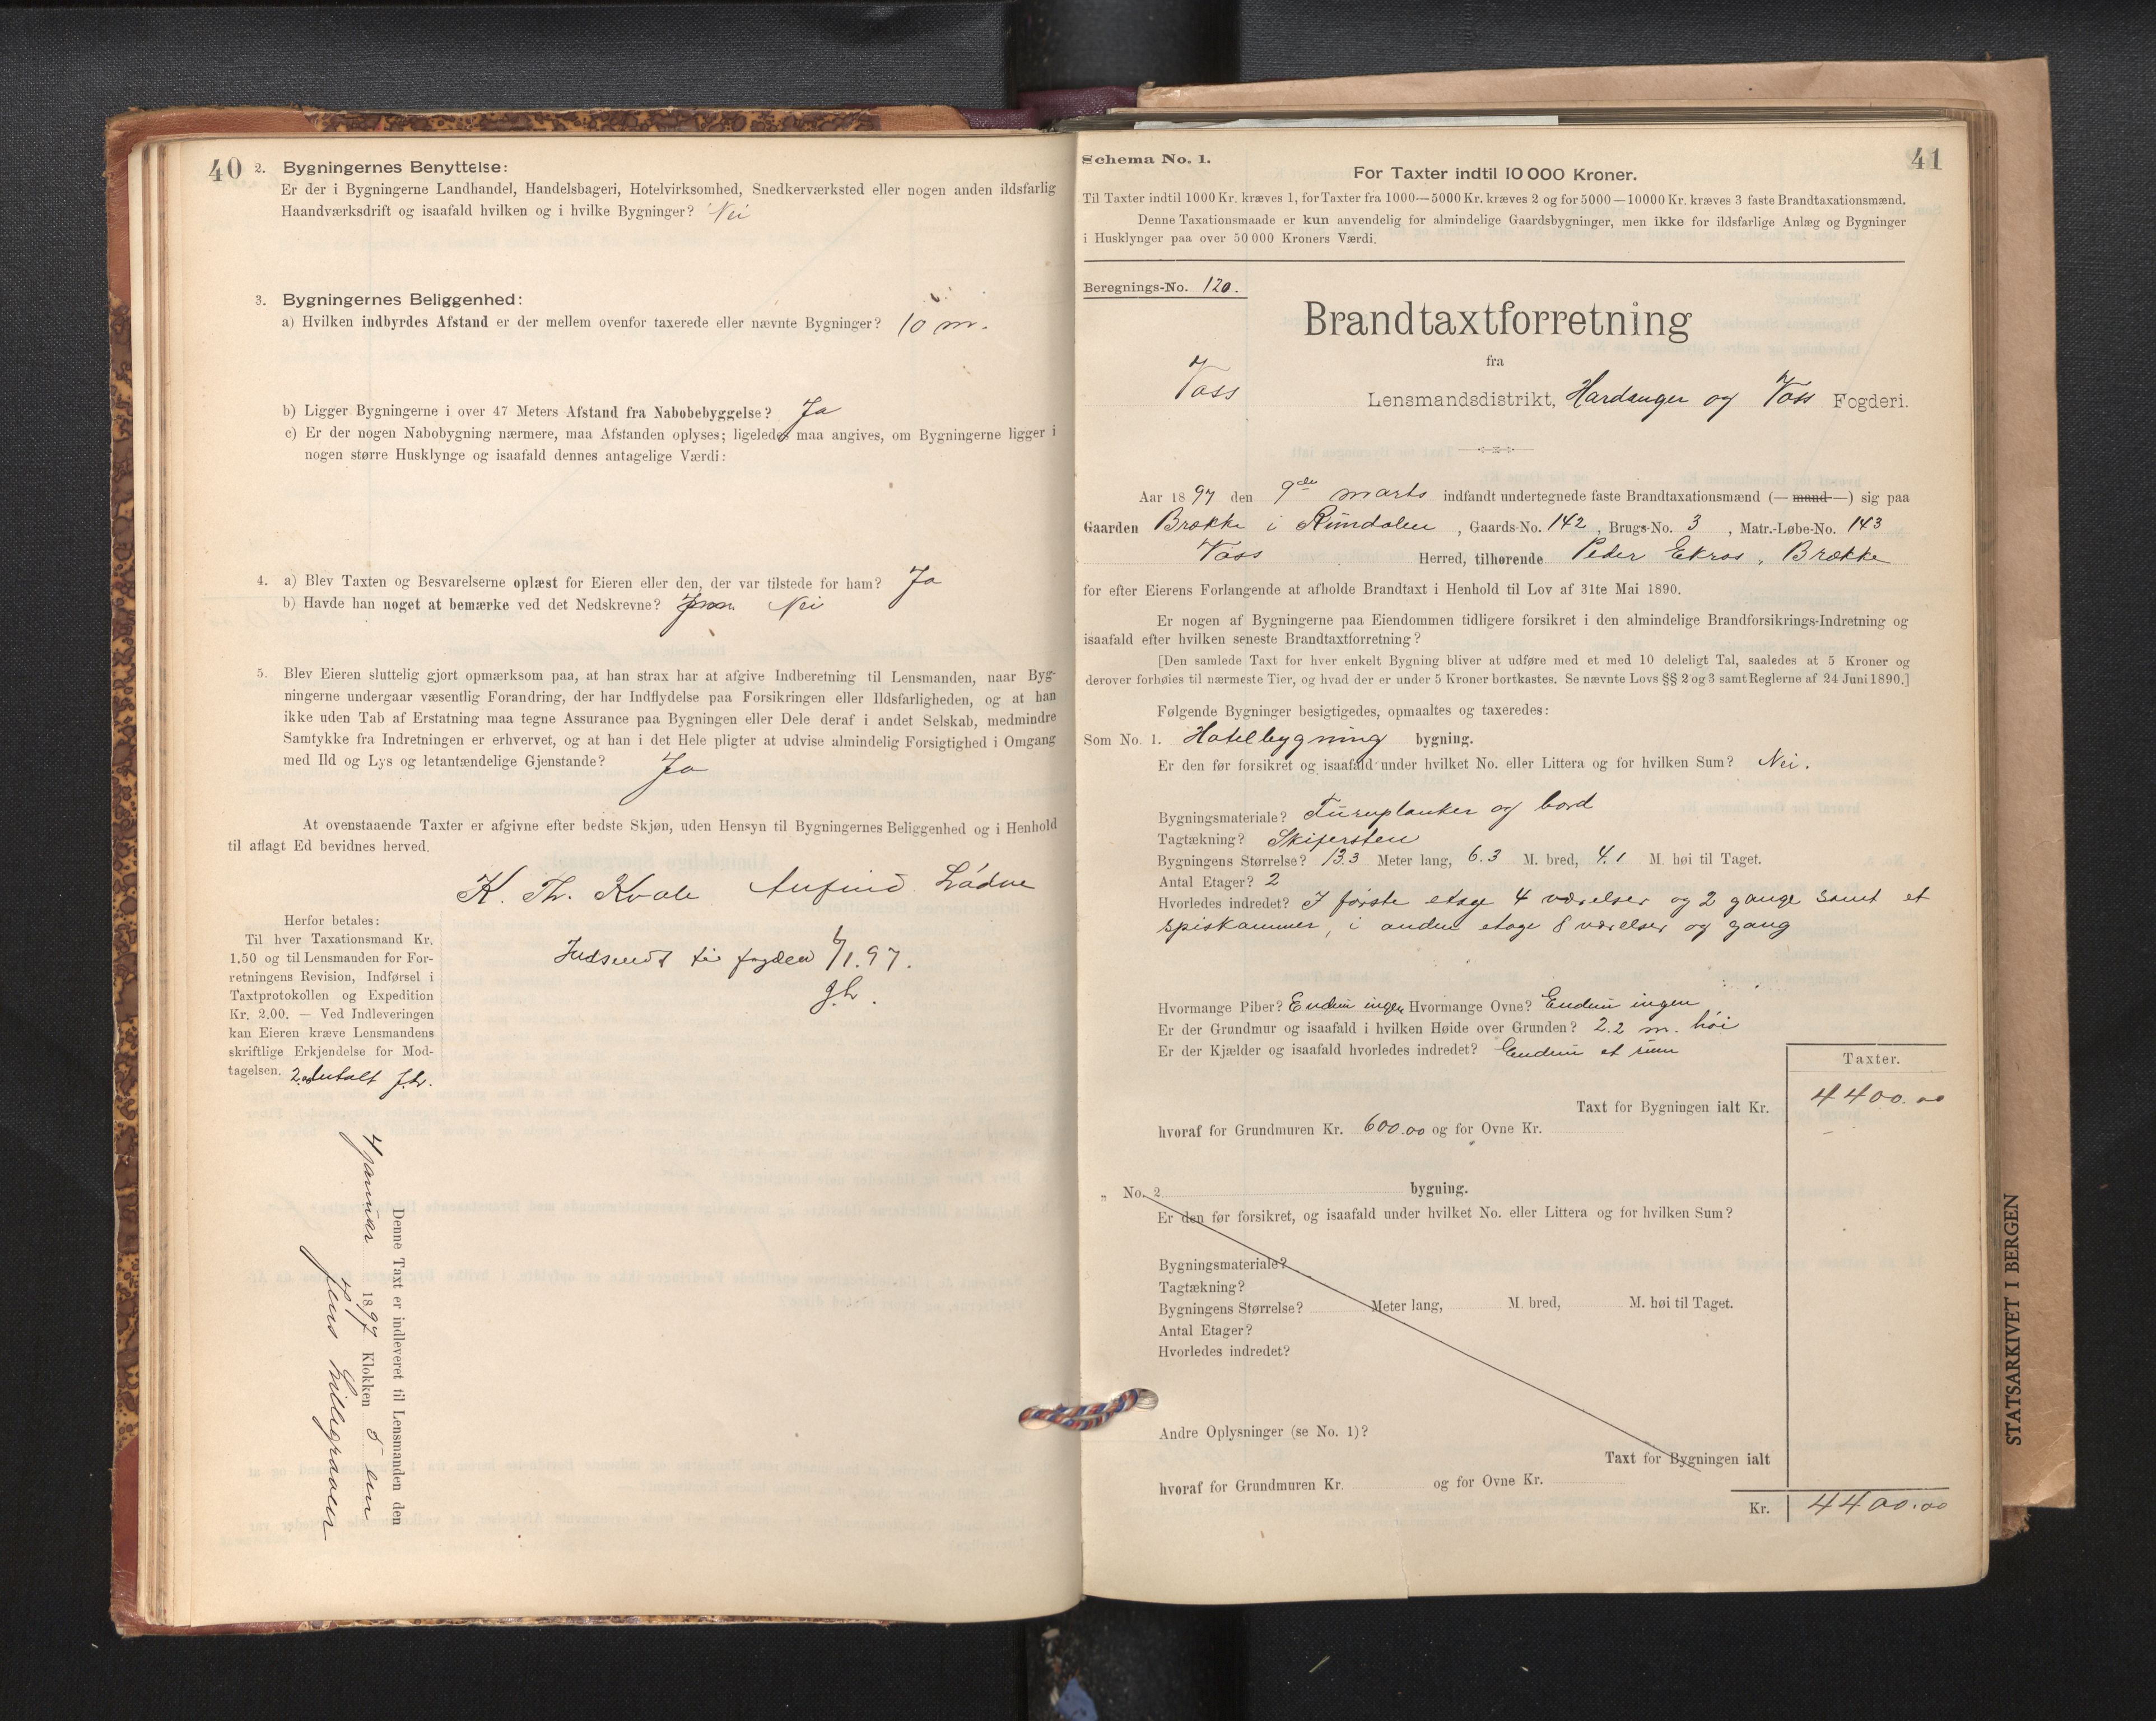 40
2. Bygningernes Benyttelse:
Er der i Bygningerne Landhandel, Handelsbageri, Hotelvirksomhed, Snedkerværksted eller nogen anden ildsfarlig
Haandværksdrift og isaafald hvilken og i hvilke Bygninger? Nei
3. Bygningernes Beliggenhed:
a) Hvilken indbyrdes Afstand er der mellem ovenfor taxerede eller nævnte Bygninger? 10 m.
b) Ligger Bygningerne i over 47 Meters Afstand fra Nabobebyggelse? Ja
c) Er der nogen Nabobygning nærmere, maa Afstanden oplyses; ligeledes maa angives, om Bygningerne ligger i
nogen større Husklynge og isaafald dennes antagelige Værdi:
4. a) Blev Taxten og Besvarelserne oplæst for Eieren eller den, der var tilstede for ham? Ja
b) Havde han noget at bemærke ved det Nedskrevne? Nei
5. Blev Eieren sluttelig gjort opmærksom paa, at han strax har at afgive Indberetning til Lensmanden, naar Byg-
ningerne undergaar væsentlig Forandring, der har Indflydelse paa Forsikringen eller Ildsfarligheden, og at han
ikke uden Tab af Erstatning maa tegne Assurance paa Bygningen eller Dele deraf i andet Selskab, medmindre
Samtykke fra Indretningen er erhvervet, og at han i det Hele pligter at udvise almindelig Forsigtighed i Omgang
med Ild og Lys og letantændelige Gjenstande? Ja
At ovenstaaende Taxter er afgivne efter bedste Skjøn, uden Hensyn til Bygningernes Beliggenhed og i Henhold
til aflagt Ed bevidnes herved.
K. Th. Kvale Anfind Lødve
Herfor betales:
Til hver Taxationsmand Kr.
1.50 og til Lensmanden for For-
retningens Revision, Indførsel i
Taxtprotokollen og Expedition
Kr. 2.00. — Ved Indleveringen
kan Eieren kræve Lensmandens
skriftlige Erkjendelse for Mod-
tagelsen.
Indsendt til fogden 6/1. 97.
J.L.
Denne Taxt er indleveret til Lensmanden den
4 januar 1897 Klokken 5 em
Jens Lillegraven
Schema No. 1.
41
For Taxter indtil 10 000 Kroner.
Til Taxter indtil 1000 Kr. kræves 1, for Taxter fra 1000—5000 Kr. kræves 2 og for 5000—10000 Kr. kræves 3 faste Brandtaxationsmænd.
Denne Taxationsmaade er kun anvendelig for almindelige Gaardsbygninger, men ikke for ildsfarlige Anlæg og Bygninger
i Husklynger paa over 50 000 Kroners Værdi.
Beregnings-No. 120.
Brandtaxtforretning
fra
Voss Lensmandsdistrikt, Hardanger og Voss Fogderi.
Aar 1897 den 9de marts indfandt undertegnede faste Brandtaxationsmænd (— mand —) sig paa
Gaarden Brække i Rundalen, Gaards-No. 142, Brugs-No. 3, Matr.-Løbe-No. 143
Voss Herred, tilhørende Peder Ekros, Brække
for efter Eierens Forlangende at afholde Brandtaxt i Henhold til Lov af 31te Mai 1890.
Er nogen af Bygningerne paa Eiendommen tidligere forsikret i den almindelige Brandforsikrings-Indretning og
isaafald efter hvilken seneste Brandtaxtforretning?
[Den samlede Taxt for hver enkelt Bygning bliver at udføre med et med 10 deleligt Tal, saaledes at 5 Kroner og
derover forhøies til nærmeste Tier, og hvad der er under 5 Kroner bortkastes. Se nævnte Lovs §§ 2 og 3 samt Reglerne af 24 Juni 1890.]
Følgende Bygninger besigtigedes, opmaaltes og taxeredes:
Som No. 1. Hotelbygning bygning.
Er den før forsikret og isaafald under hvilket No. eller Littera og for hvilken Sum? Nei.
Bygningsmateriale? Furuplanker og bord
Tagtækning? Skifersten
Bygningens Størrelse? 13.3 Meter lang, 6.3 M. bred, 4.1 M. høi til Taget.
Antal Etager? 2
Hvorledes indredet? I første etage 4 værelser og 2 gange samt et
spiskammer, i anden etage 8 værelser og gang
Hvormange Piber? Endnu ingen Hvormange Ovne? Endnu ingen
Er der Grundmur og isaafald i hvilken Høide over Grunden? 2.2 m. høi
Er der Kjælder og isaafald hvorledes indredet? Endnu et rum
Taxter.
Taxt for Bygningen ialt Kr. 4400.00
hvoraf for Grundmuren Kr. 600.00 og for Ovne Kr.
„ No. 2 bygning.
Er den før forsikret, og isaafald under hvilket No. eller Littera og for hvilken Sum?
Bygningsmateriale?
Tagtækning?
Bygningens Størrelse? Meter lang, M. bred, M. høi til Taget.
Antal Etager?
Hvorledes indredet?
Andre Oplysninger (se No. 1)?
Taxt for Bygningen ialt
hvoraf for Grundmuren Kr. og for Ovne Kr.
Kr. 4400.00
STATSARKIVET I BERGEN